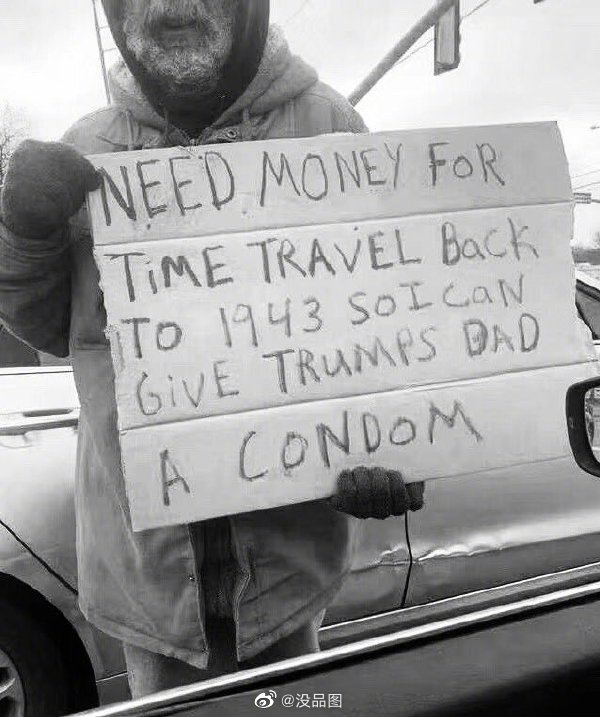 NEED MONEY FOR
TIME TRAVEL BACK
TO 1943 SO I CAN
GIVE TRUMPS DAD
A CONDOM
@没品图